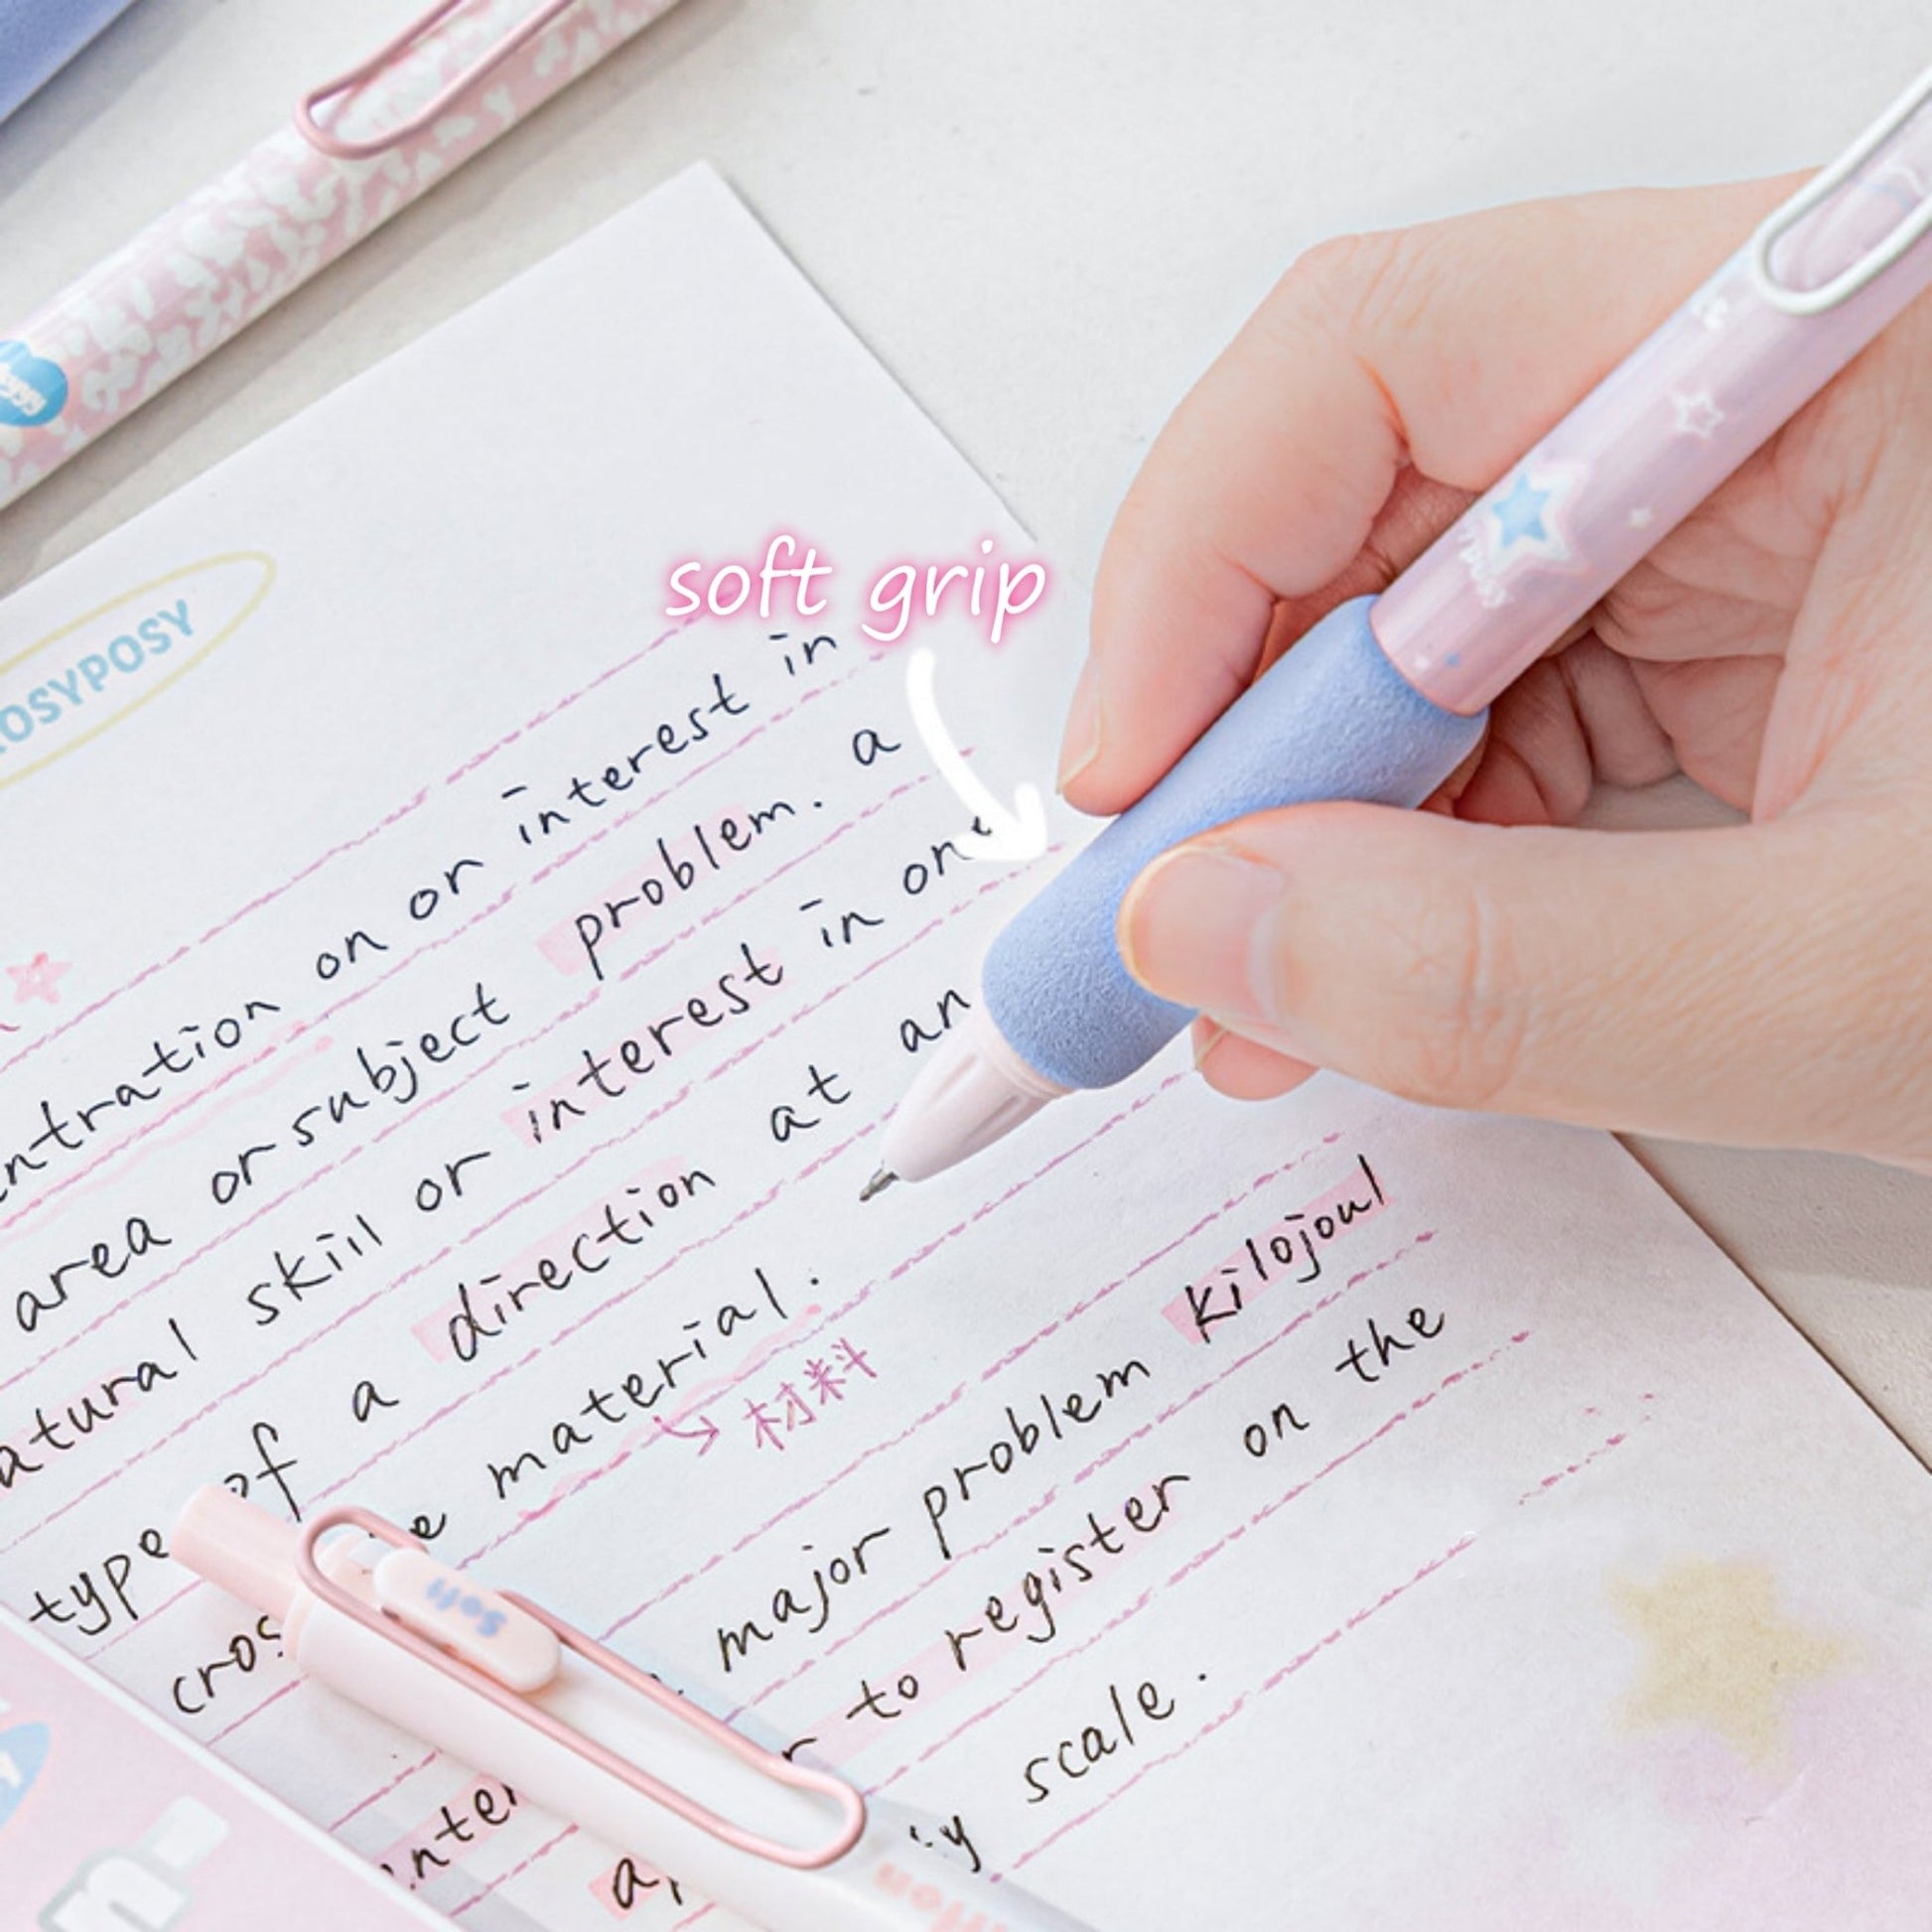 soft grip
OSYPOSY
ntration on or interest in
area or subject problem. a
atural skill or interest in one
type of a direction at an
cros e material.
材料
major problem kilojoul
inter r to register on the
ap ly scale.
Soft